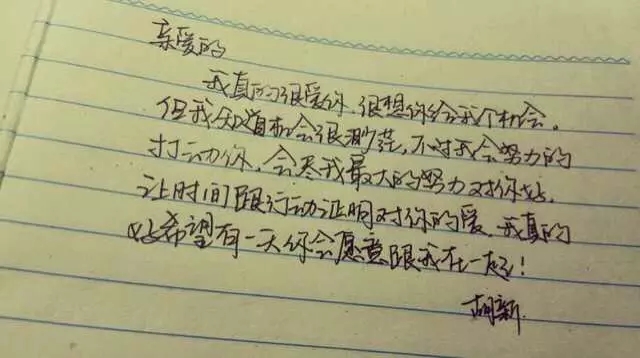 亲爱的
我真的很爱你,很想你给我个机会,
但我知道机会很渺茫,不过我会努力的
打动你,会尽我最大的努力对你好,
让时间跟行动证明对你的爱,我真的
好希望有一天你会愿意跟我在一起!
胡新